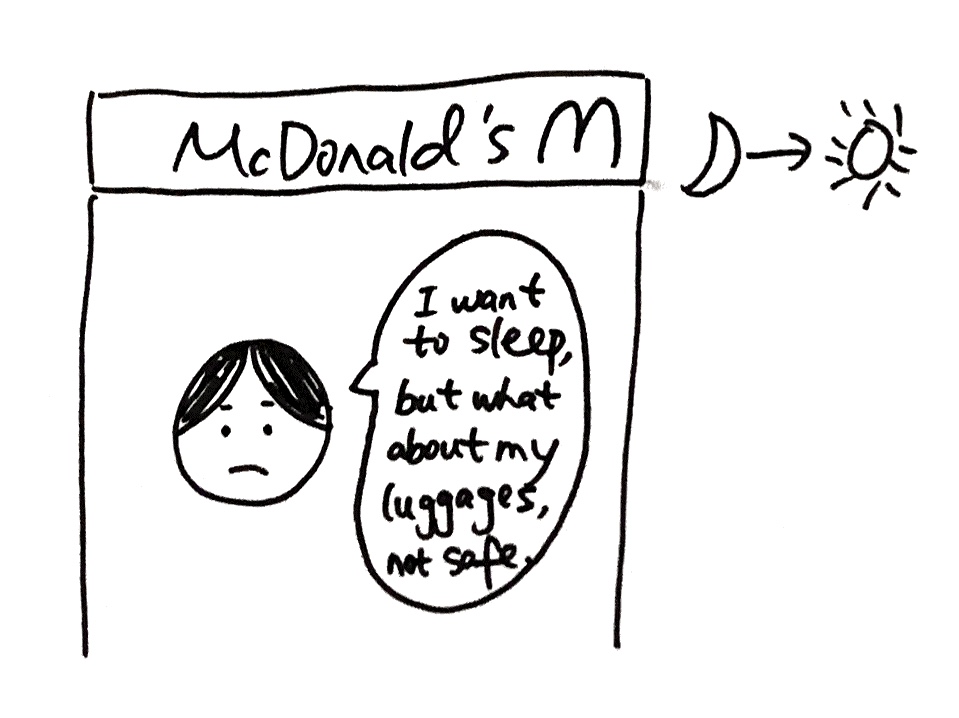 McDonald's M
I want
to sleep,
but what
about my
luggages,
not safe.